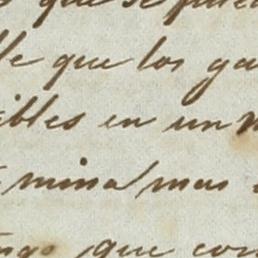 que se pued
le que los ga
ibles en un m
mina mas
ngo que con